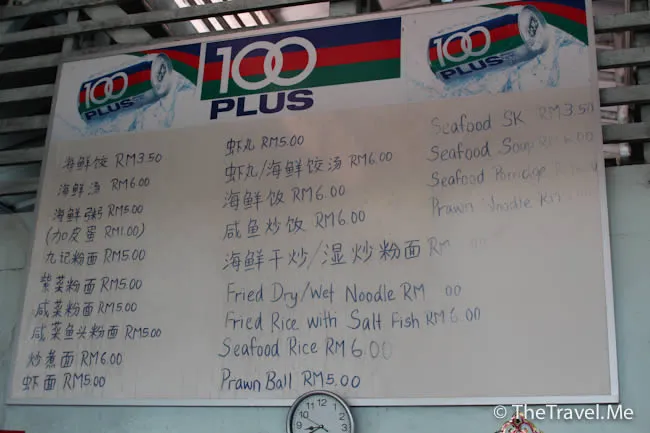 100
PLUS
100
PLUS
100
PLUS
海鲜饺 RM3.50
海鲜汤 RM6.00
海鲜粥 RM5.00
(加皮蛋 RM1.00)
九记粉面 RM5.00
紫菜粉面 RM5.00
咸菜粉面 RM5.00
咸菜鱼头粉面 RM5.00
炒煮面 RM6.00
虾面 RM5.00
虾丸 RM5.00
虾丸/海鲜饺汤 RM6.00
海鲜饭 RM6.00
咸鱼炒饭 RM6.00
海鲜干炒/湿炒粉面 RM
Fried Dry/Wet Noodle RM 00
Fried Rice with Salt Fish RM 6.00
Seafood Rice RM 6.00
Prawn Ball RM5.00
Seafood SK RM3.50
Seafood Soup
Seafood Porridge
Prawn Noodle
© TheTravel.Me